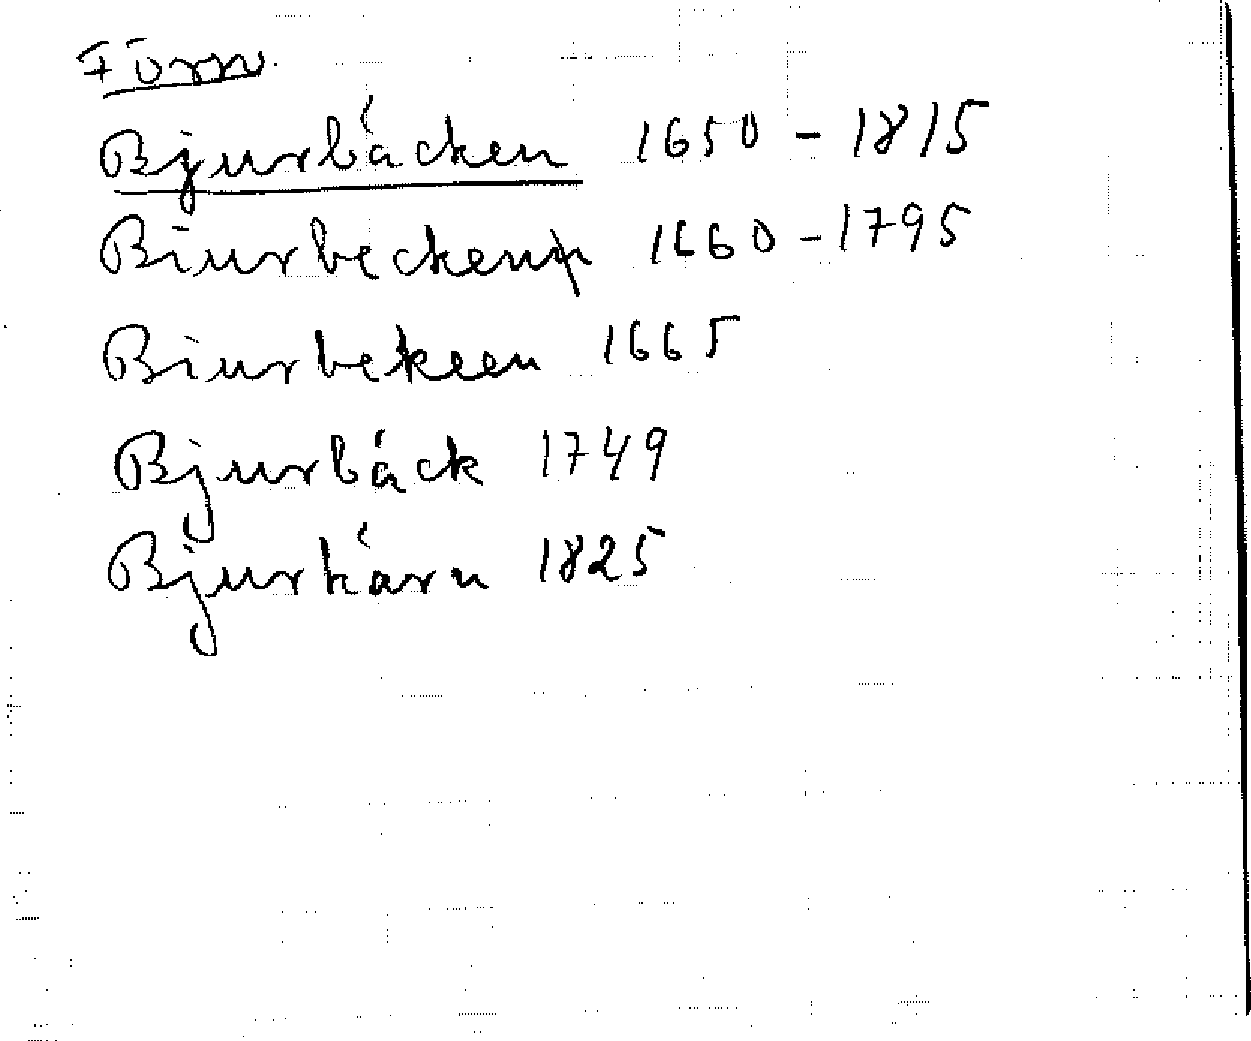 Förr
Bjurbäcken 1650 - 1815
Biurbecken 1660 - 1795
Biurbekeen 1665
Bjurbäck 1749
Bjurkärn 1825